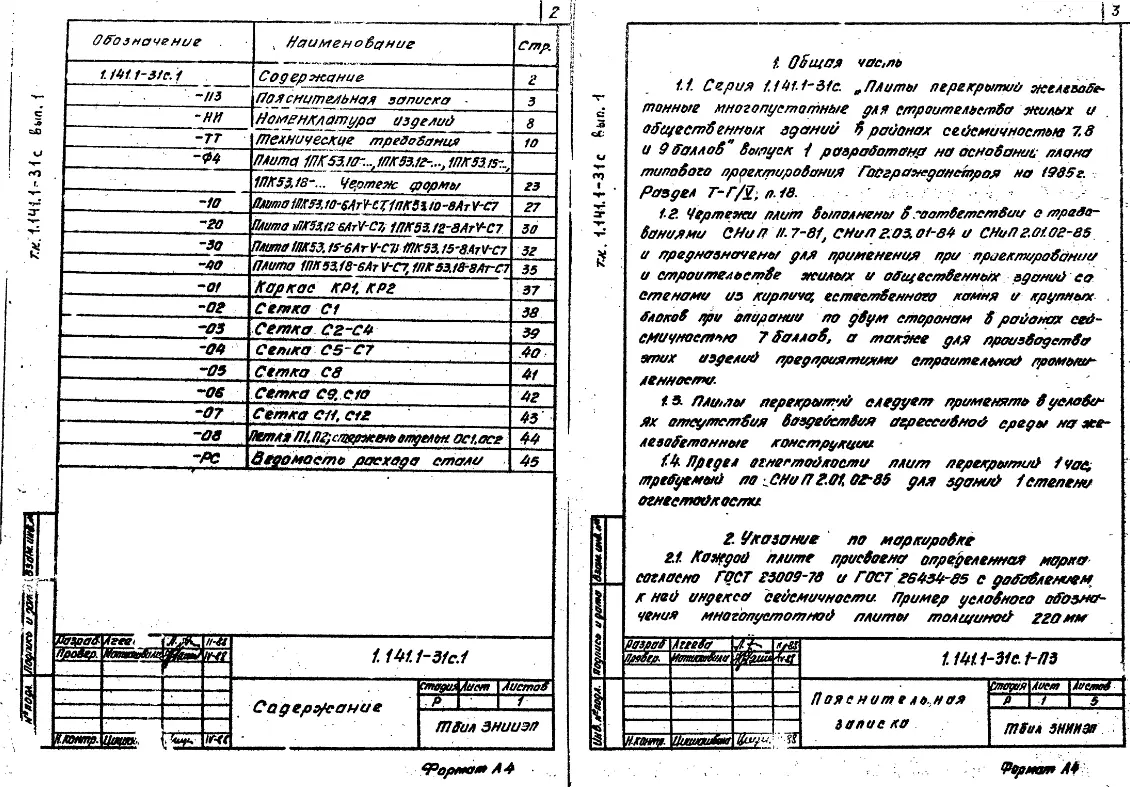 2
Обозначение Наименование Стр.
1.141.1-31с.1 Содержание 2
-ПЗ Пояснительная записка 3
-НИ Номенклатура изделий 8
-ТТ Технические требования 10
-Ф4 Плита 1ПК53.10-..., 1ПК53.12-..., 1ПК53.15-...,
1ПК53.18-... Чертеж формы 23
-10 Плита 1ПК53.10-6АтV-С7, 1ПК53.10-8АтV-С7 27
-20 Плита 1ПК53.12-6АтV-С7, 1ПК53.12-8АтV-С7 30
-30 Плита 1ПК53.15-6АтV-С7, 1ПК53.15-8АтV-С7 32
-40 Плита 1ПК53.18-6АтV-С7, 1ПК53.18-8Ат-С7 35
-01 Каркас КР1, КР2 37
-02 Сетка С1 38
-03 Сетка С2-С4 39
-04 Сетка С5-С7 40
-05 Сетка С8 41
-06 Сетка С9, С10 42
-07 Сетка С11, С12 43
-08 Петля П1, П2; стержень отдельн. ОС1, ОС2 44
-РС Ведомость расхода стали 45
т.к. 1.141.1-31с вып. 1
Взам. инв. №
Подпись и дата
№ подл.
Разраб. Агеева IV-88
Провер. IV-88
Н.контр. IV-88
1.141.1-31с.1
Содержание
Стадия Лист Листов
Р 1
ТбилЗНИИЭП
Формат А4
3
1. Общая часть
1.1. Серия 1.141.1-31с. „Плиты перекрытий железобе-
тонные многопустотные для строительства жилых и
общественных зданий в районах сейсмичностью 7.8
и 9 баллов" выпуск 1 разработана на основании плана
типового проектирования Госгражданстроя на 1985г.
Раздел Т-Г/V; п.18.
1.2. Чертежи плит выполнены в соответствии с требо-
ваниями СНиП II.7-81, СНиП 2.03.01-84 и СНиП 2.01.02-85
и предназначены для применения при проектировании
и строительстве жилых и общественных зданий со
стенами из кирпича, естественного камня и крупных
блоков при опирании по двум сторонам в районах сей-
смичностью 7 баллов, а также для производства
этих изделий предприятиями строительной промыш-
ленности.
1.3. Плиты перекрытий следует применять в услови-
ях отсутствия воздействия агрессивной среды на же-
лезобетонные конструкции.
1.4. Предел огнестойкости плит перекрытий 1 час,
требуемый по СНиП 2.01.02-85 для зданий 1 степени
огнестойкости.
2. Указание по маркировке
2.1. Каждой плите присвоена определенная марка
согласно ГОСТ 23009-78 и ГОСТ 26434-85 с добавлением
к ней индекса сейсмичности. Пример условного обозна-
чения многопустотной плиты толщиной 220мм
т.к. 1.141.1-31с вып. 1
Взам. инв. №
Подпись и дата
Инв. № подл.
Разраб. Агеева IV-88
Провер. IV-88
Н.контр. 88
1.141.1-31с.1-ПЗ
Пояснительная
записка
Стадия Лист Листов
Р 1 5
ТбилЗНИИЭП
Формат А4